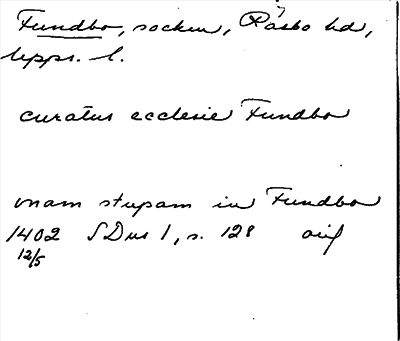 Fundbo, socken, Rasbo hd,
Upps. l.
curatus ecclesie Fundbo
vnam stupam in Fundbo
1402 SDns 1, s. 128
12/5